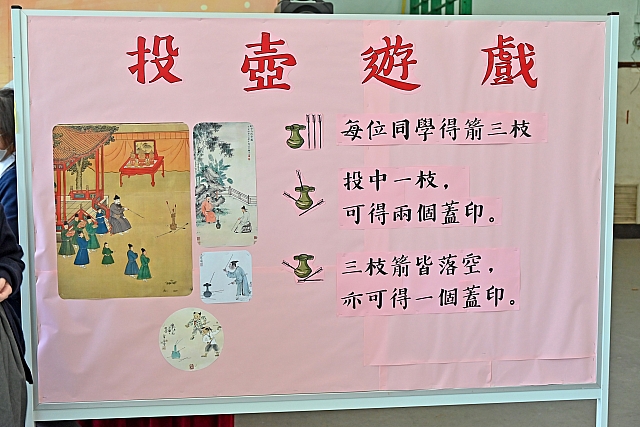 投壺遊戲
每位同學得箭三枝
投中一枝，
可得兩個蓋印。
三枝箭皆落空，
亦可得一個蓋印。